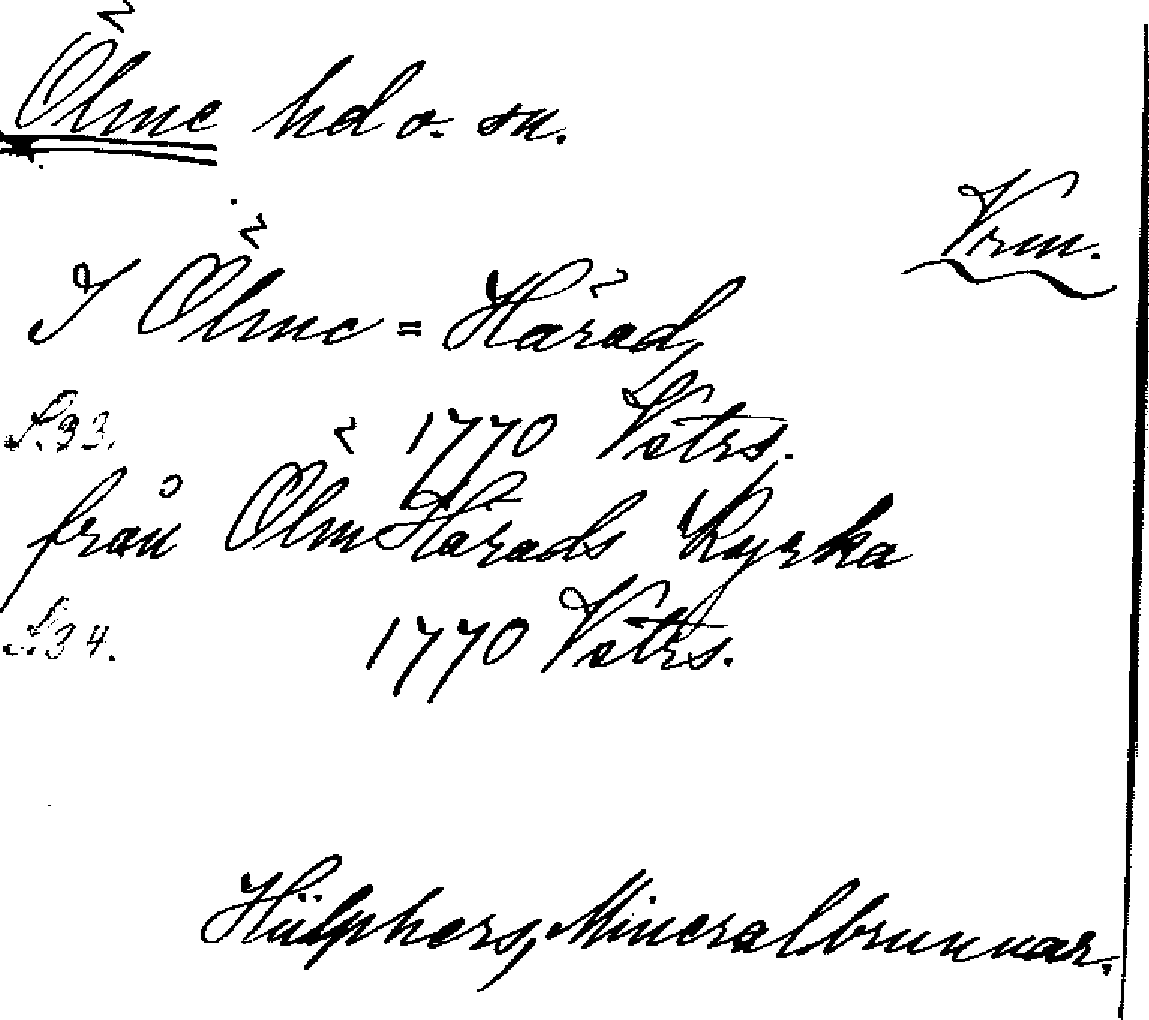 Ölme hd o. sn.
Vrm.
I Ölme = Härad,
S. 93. 1770 Vstrs.
från Ölme Härads Kyrka
S. 94. 1770 Vstrs.
Hülphers, Mineralbrunnar.